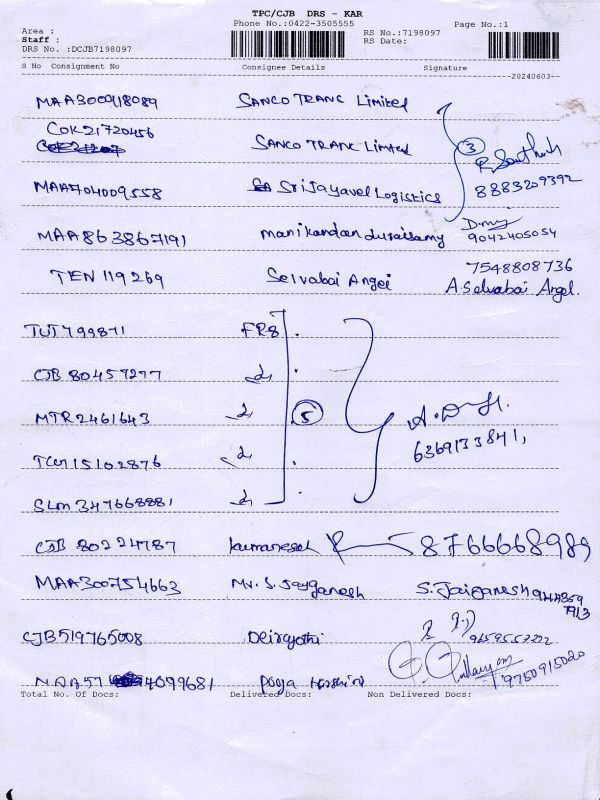 TPC/CJB DRS - KAR
Phone No.:0422-3505555
Page No.:1
Area :
Staff :
DRS No. :DCJB7198097
RS No.:7198097
RS Date:
S No Consignment No Consignee Details Signature
20240603--
MAA300918089 SANCO TRANC Limited
COK21720456 SANCO TRANC Limited 3
8883209392
MAA704009558 Sri Jayavel Logistics
MAA863867191 manikandan duraisamy 9042405054
TEN 119269 Selvabai Angel 7548808736
A Selvabai Angel.
TUT799871 FR8
CJB 80459277
MTR2461643 5
6369133841,
15102876
SLM 347668881
CJB 80224787 kumaresan 8766668989
MAA300754663 Mr. S. Jayganesh S. Jaiganesh
7913
CJB519765008
MAA57 4099681 Pooja 9750915020
Total No. Of Docs: Delivered Docs: Non Delivered Docs: